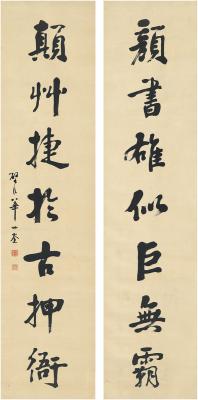 顏書雄似巨無霸
顛艸捷於古押衙
華世奎